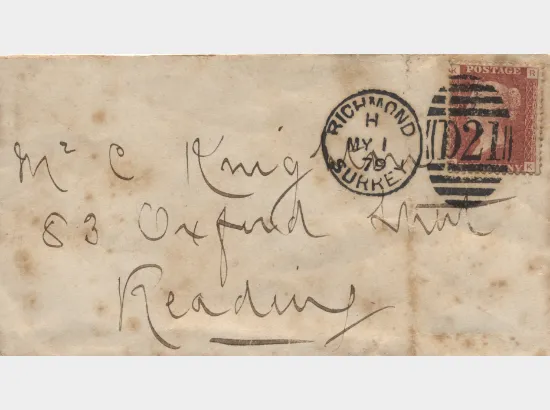 K POSTAGE R
RICHMOND
H
MY 1
79
SURREY
D21
Mr C Knight
83 Oxford Street
Reading